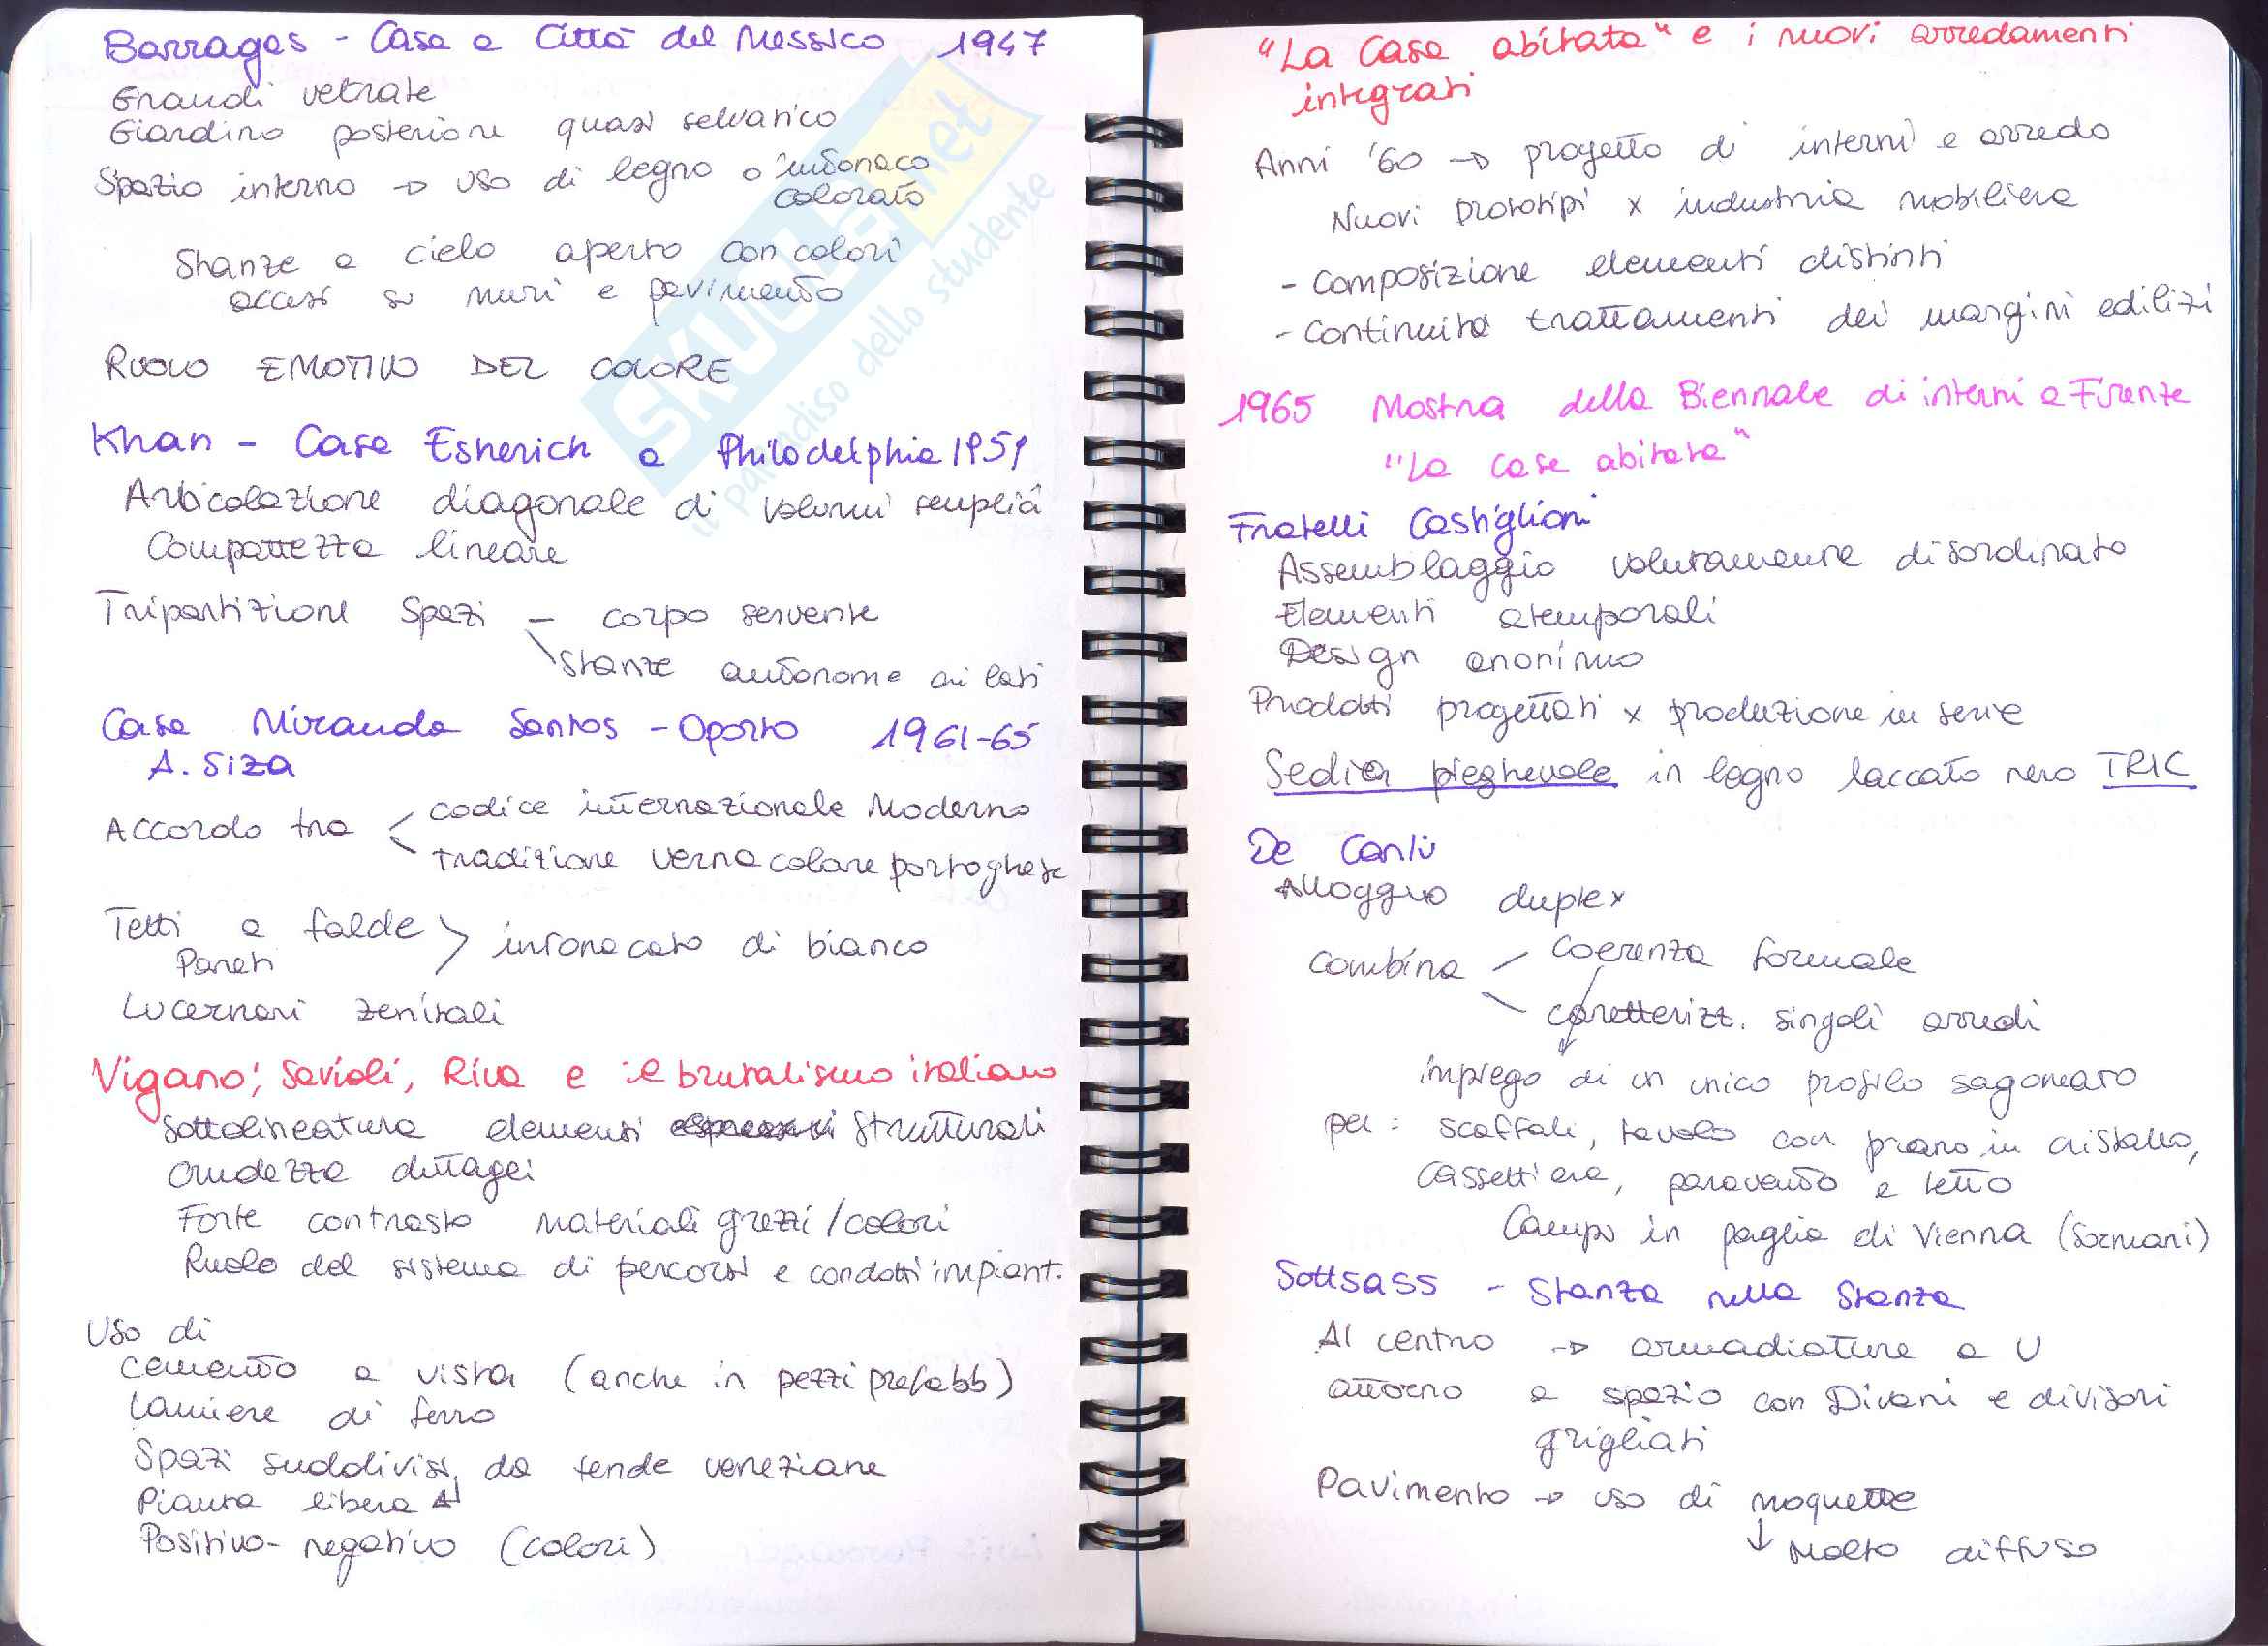 Barragas - Casa a Città del Messico 1947
Grandi vetrate
Giardino posteriore quasi selvatico
Spazio interno → uso di legno o intonaco
colorato
Stanze a cielo aperto con colori
accesi su muri e pavimento
RUOLO EMOTIVO DEL COLORE
Khan - Casa Esherich a Philadelphia 1959
Articolazione diagonale di volumi semplici
Compattezza lineare
Tripartizione spazi - corpo servente
stanze autonome ai lati
Casa Miranda Santos - Oporto 1961-65
A. Siza
Accordo tra < codice internazionale Moderno
tradizione vernacolare portoghese
Tetti a falde > intonacato di bianco
Pareti
Lucernari zenitali
Vigano', Savioli, Riva e il brutalismo italiano
Sottolineatura elementi strutturali
Crudezza dettagli
Forte contrasto materiali grezzi/colori
Ruolo del sistema di percorsi e condotti impiant.
Uso di
cemento a vista (anche in pezzi prefabb)
Lamiere di ferro
Spazi suddivisi da tende veneziane
Pianta libera
Positivo-negativo (colori)
"La Casa abitata" e i nuovi arredamenti
integrati
Anni '60 → progetto di interni e arredo
Nuovi prototipi x industria mobiliera
- Composizione elementi distinti
- Continuità trattamenti dei margini edilizi
1965 Mostra della Biennale di interni a Firenze
"La casa abitata"
Fratelli Castiglioni
Assemblaggio volutamente disordinato
Elementi atemporali
Design anonimo
Prodotti progettati x produzione in serie
Sedia pieghevole in legno laccato nero TRIC
De Carli
Alloggio duplex
Combina - coerenza formale
caratterizz. singoli arredi
impiego di un unico profilo sagomato
per: scaffali, tavolo con piano in cristallo,
cassettiera, paravento e letto
Campo in paglia di Vienna (Sormani)
Sottsass - Stanza nella Stanza
Al centro → armadiature a U
attorno a spazio con Divani e divisori
grigliati
Pavimento → uso di moquette
↓ Molto diffuso
SKUOLA.net
il paradiso dello studente